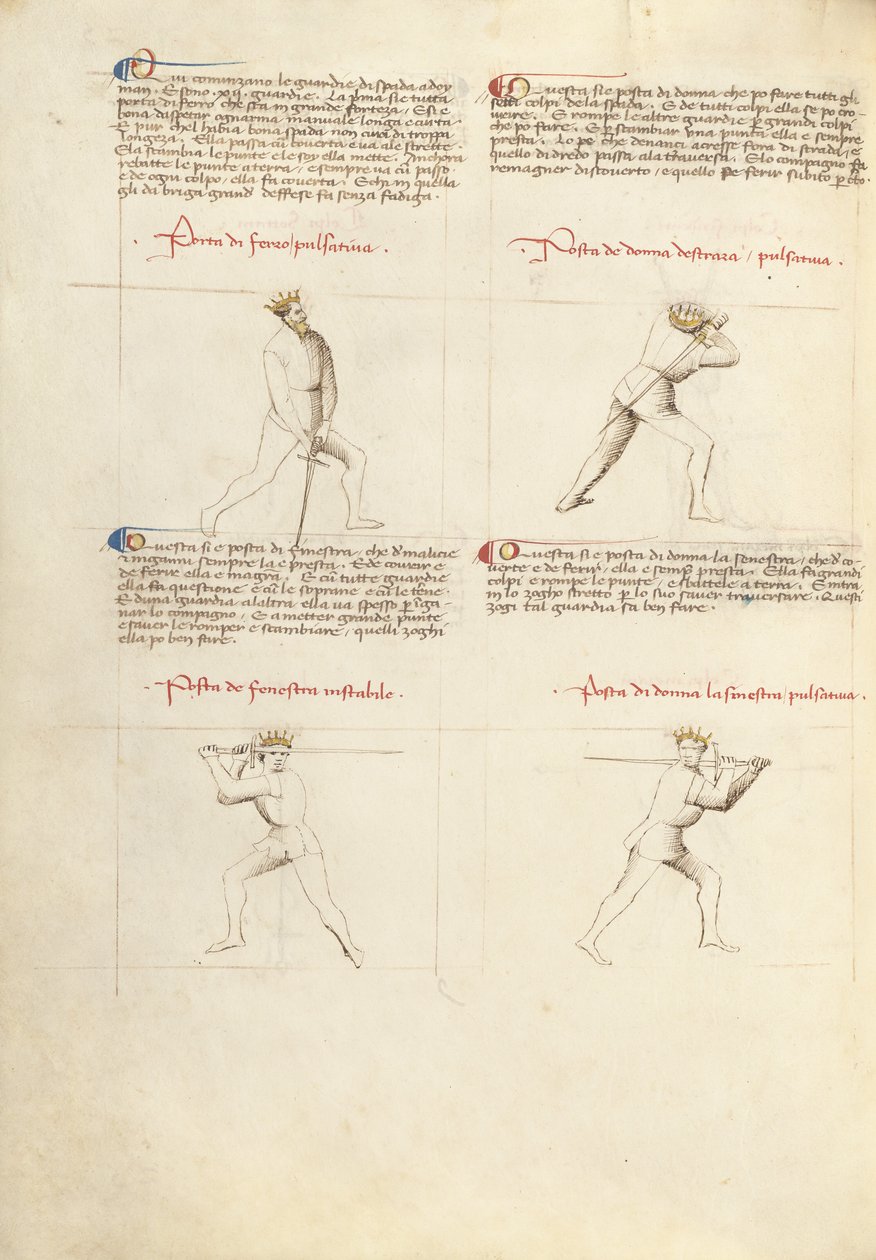 Qui cominzano le guardie di spada a doy
man. E sono .xij. guardie. La p̃ma si e tutta
porta di ferro che sta in grande forteza. E si e
bona daspetar ognarma manuale longa e curta.
E pur chel habia bona spada non cura di troppa
longeza. Ella passa cũ coverta e va ale strette.
Ela scambia le punte e le soy ella mette. Anchora
rebatte le punte a terra, e sempre va cũ passo
e de ogni colpo, ella fa coverta. E chi in quella
gli da briga grand' deffese fa senza fadiga.
. Porta di ferro / pulsativa .
Questa si e posta di donna che po fare tutti gli
setti colpi de la spada. E de tutti colpi ella se po cro-
vrire. E rompe le altre guardie p̱ grandi colpi
che po fare. E p̱ scambiar una punta ella e sempre
presta. Lo pe che denanci acresse fora di strada, e
quello di dredo passa ala traversa. E lo compagno fa
remagner discoverto, e quello pe ferir subito p̱ c̃to.
. Posta de donna destraza / pulsativa .
Questa si e posta di finestra, che d' malicie
e inganni sempre la e presta. E de covrir e
de ferir ella e magra. E cũ tutte guardie
ella fa questione e cũ le soprane e cũ le tẽne.
E d'una guardia a laltra ella va spesso p̱ ĩga-
nar lo compagno, E a metter grande punte
e saver le romper e scambiare, quelli zoghi
ella po ben fare.
. Posta de fenestra instabile .
Questa si e posta di donna la senestra, che d' co-
verte e de ferir, ella e semp̱ presta. Ella fa grandi
colpi e rompe le punte, e sbattele a terra. E intra
in lo zogho stretto p̱ lo suo saver traversare. Questi
zogi tal guardia sa ben fare.
. Posta di donna la sinestra / pulsativa .